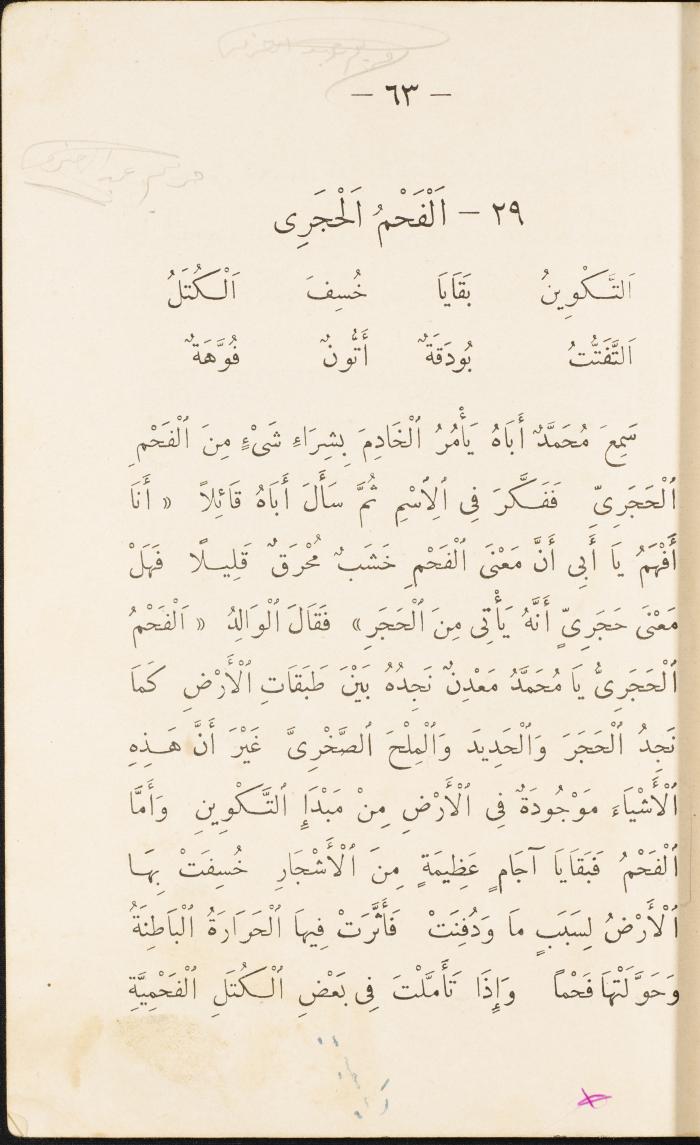 — ٦٣ —
٢٩ — اَلْفَحْمُ اَلْحَجَرِى
اَلتَّكْوِينُ بَقَايَا خُسِفَ اَلْكُتَلُ
اَلتَّفَتُّتُ بُودَقَةٌ أَتُّونٌ فُوَّهَةٌ
سَمِعَ مُحَمَّدٌ أَبَاهُ يَأْمُرُ ٱلْخَادِمَ بِشِرَاءِ شَىْءٍ مِنَ ٱلْفَحْمِ
ٱلْحَجَرِىِّ فَفَكَّرَ فِى ٱلِٱسْمِ ثُمَّ سَأَلَ أَبَاهُ قَائِلاً « أَنَا
أَفْهَمُ يَا أَبِى أَنَّ مَعْنَى ٱلْفَحْمِ خَشَبٌ مُحْرَقٌ قَلِيلًا فَهَلْ
مَعْنَى حَجَرِىٍّ أَنَّهُ يَأْتِى مِنَ ٱلْحَجَرِ» فَقَالَ ٱلْوَالِدُ « اَلْفَحْمُ
ٱلْحَجَرِىُّ يَا مُحَمَّدُ مَعْدِنٌ نَجِدُهُ بَيْنَ طَبَقَاتِ ٱلْأَرْضِ كَمَا
نَجِدُ ٱلْحَجَرَ وَٱلْحَدِيدَ وَٱلْمِلْحَ ٱلصَّخْرِىَّ غَيْرَ أَنَّ هَـذِهِ
ٱلْأَشْيَاءَ مَوْجُودَةٌ فِى ٱلْأَرْضِ مِنْ مَبْدَإِ ٱلتَّكْوِينِ وَأَمَّا
ٱلْفَحْمُ فَبَقَايَا آجَامٍ عَظِيمَةٍ مِنَ ٱلْأَشْجَارِ خُسِفَتْ بِهَا
ٱلْأَرْضُ لِسَبَبٍ مَا وَدُفِنَتْ فَأَثَّرَتْ فِيهَا ٱلْحَرَارَةُ ٱلْبَاطِنَةُ
وَحَوَّلَتْهَا فَحْمًا وَإِذَا تَأَمَّلْتَ فِى بَعْضِ ٱلْكُتَلِ ٱلْفَحْمِيَّةِ